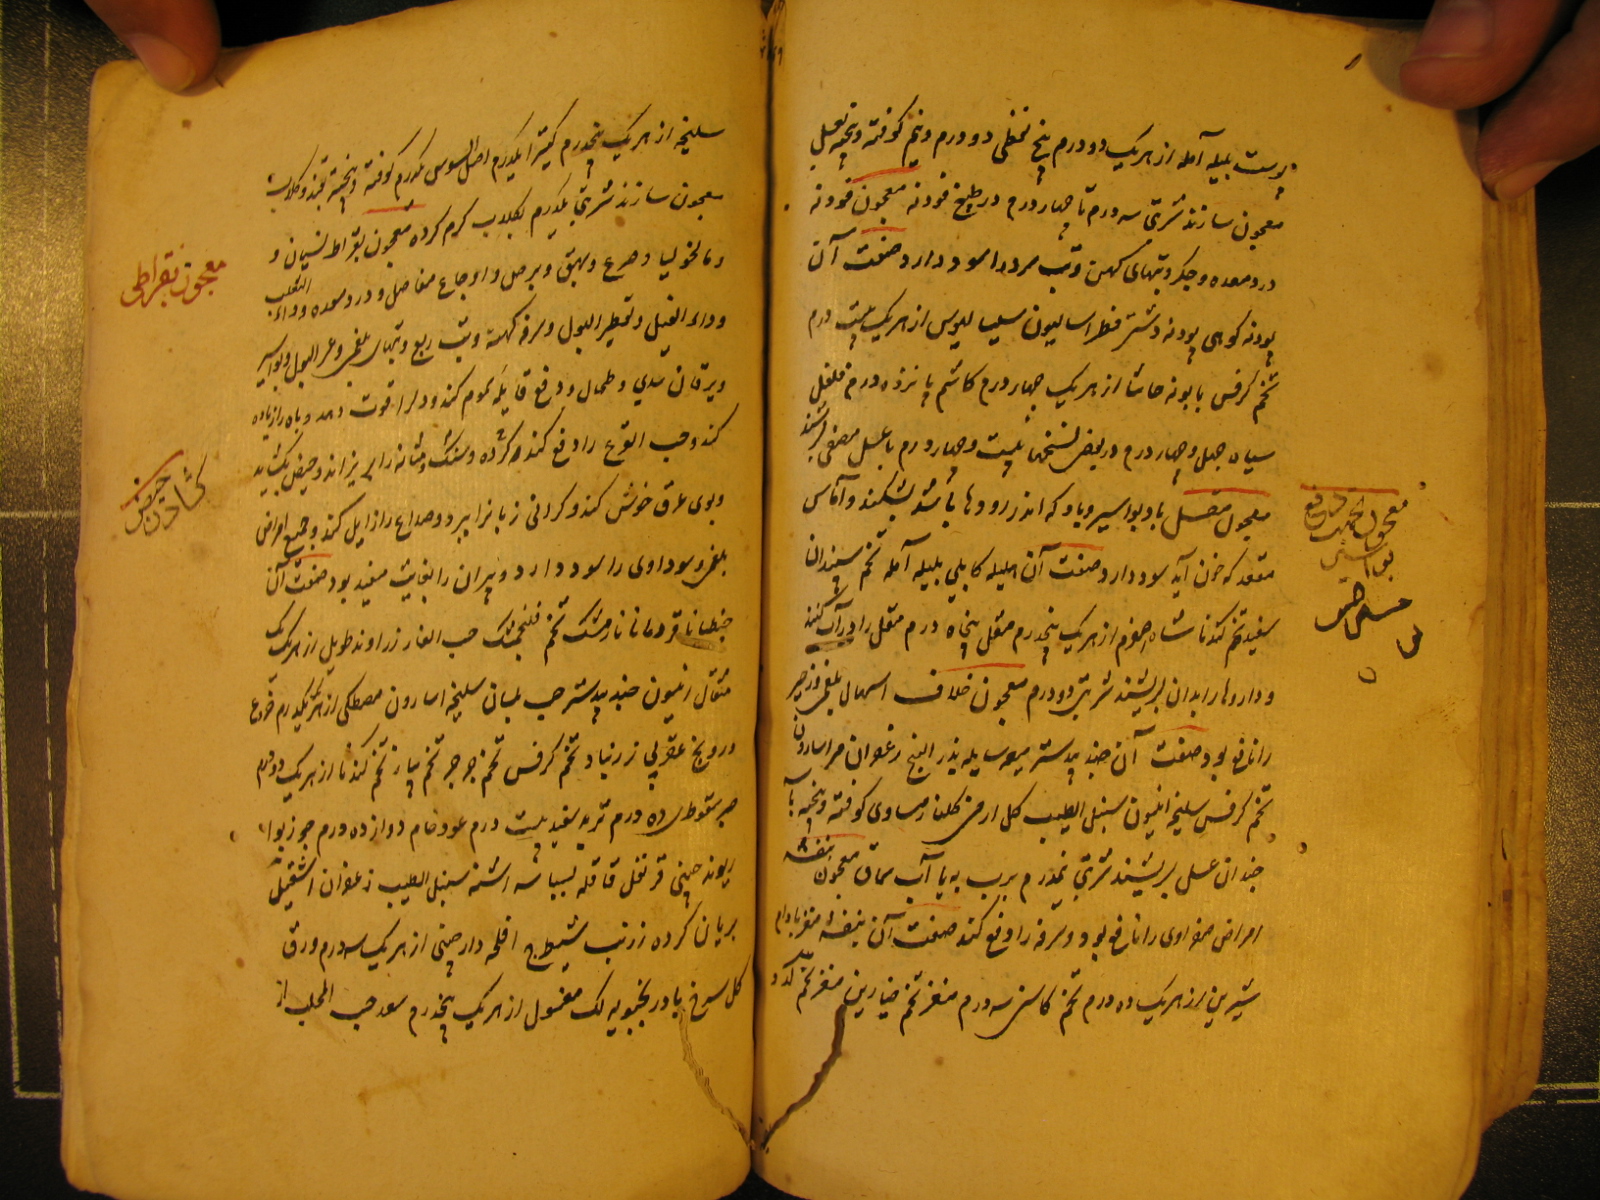 پوست بلیله آمله از هریک دو درم بیخ نمفلی دو درم و نیم کوفته و بیخته بعسل
معجون سازند شربتی سه درم تا چهار درم در طبیخ فودنه معجون فودنه
درد معده و جگر و تبهای کهن و تب سرد را سود دارد صنعت آن
پودنه کوهی پودنه دشتی فطراسالیون سیسالیوس از هریک بیست درم
تخم کرفس بابونه حاشا از هریک چهار درم کاشم پانزده درم فلفل
سیاه چهل و چهار درم در بعضی نسخها بیست و چهار درم با عسل مصفی بسرشند
معجون مقل با دبواسیر و باد که اندر رودها باشد بشکند و آماس
مقعد که خون آید سود دارد صنعت آن هلیله کابلی بلیله آمله تخم سپندان
سفید تخم گندنا شاه از هریک پنجدرم مقل پنجاه درم مقل را در آب کنند
و داروها را بدان بسریشند شربتی دو درم معجون خلاف اسهال بلغمی و زحیر
را نافع بود صنعت آن جندبیدستر میعه سایله بذر البنج زعفران مر اسارون
تخم کرفس سلیخه افیون سنبل الطیب گل ارمنی گلنار مساوی کوفته و بیخته با
چندان عسل بسریشند شربتی نیمدرم برب به یا آب سماق معجون بنفشه
امراض صفراوی را نافع بود و سرفه را دفع کند صنعت آن بنفشه مغز بادام
شیرین از هریک ده درم تخم کاسنی سه درم مغز تخم خیارین مغز تخم کدو
معجون
بواسیر
سلیخه از هریک پنجدرم کتیرا یکدرم اصل السوس یکدرم کوفته و بیخته بقند و گلاب
معجون سازند شربتی یکدرم بگلاب گرم کرده معجون بقراط نسیان و
و مالخولیا و صرع و بهق و برص و اوجاع مفاصل و درد معده و داء الثعلب
و داء الفیل و تقطیر البول و سرفه کهنه و تب ربع و تبهای بلغمی و عسر البول و بواسیر
و یرقان سدی و طحال و دفع غایله سموم کند و دل را قوت دهد و باه را زیاده
کند و حب القرع را دفع کند و گرده و سنگ مثانه را بریزاند و حیض بگشاید
و بوی عرق خوش کند و گرانی زبان را ببرد و صداع را زایل کند و جمیع امراض
بلغمی و سوداوی را سود دارد و پیران را بغایت مفید بود صنعت آن
جنطیانا قردمانا نارمشک تخم فلنجمشک حب الغار زراوند طویل از هریک یک
مثقال افیون جندبیدستر حب بلسان سلیخه اسارون مصطکی از هریک یکدرم
درونج عقربی زرنباد تخم کرفس تخم جرجر تخم پیاز تخم گندنا از هریک دو درم
صبر سقوطری ده درم تربد سفید بیست درم عود خام دوازده درم جوزبوا
ریوند چینی قرنفل قاقله بسباسه اشنه سنبل الطیب زعفران اشقیل
بریان کرده زرنب شیطرج افلحه دارچینی از هریک سه درم ورق
گل سرخ بادرنجبویه لک مغسول از هریک پنجدرم سعد حب المحلب از
معجون بقراطی
گشادن حیض